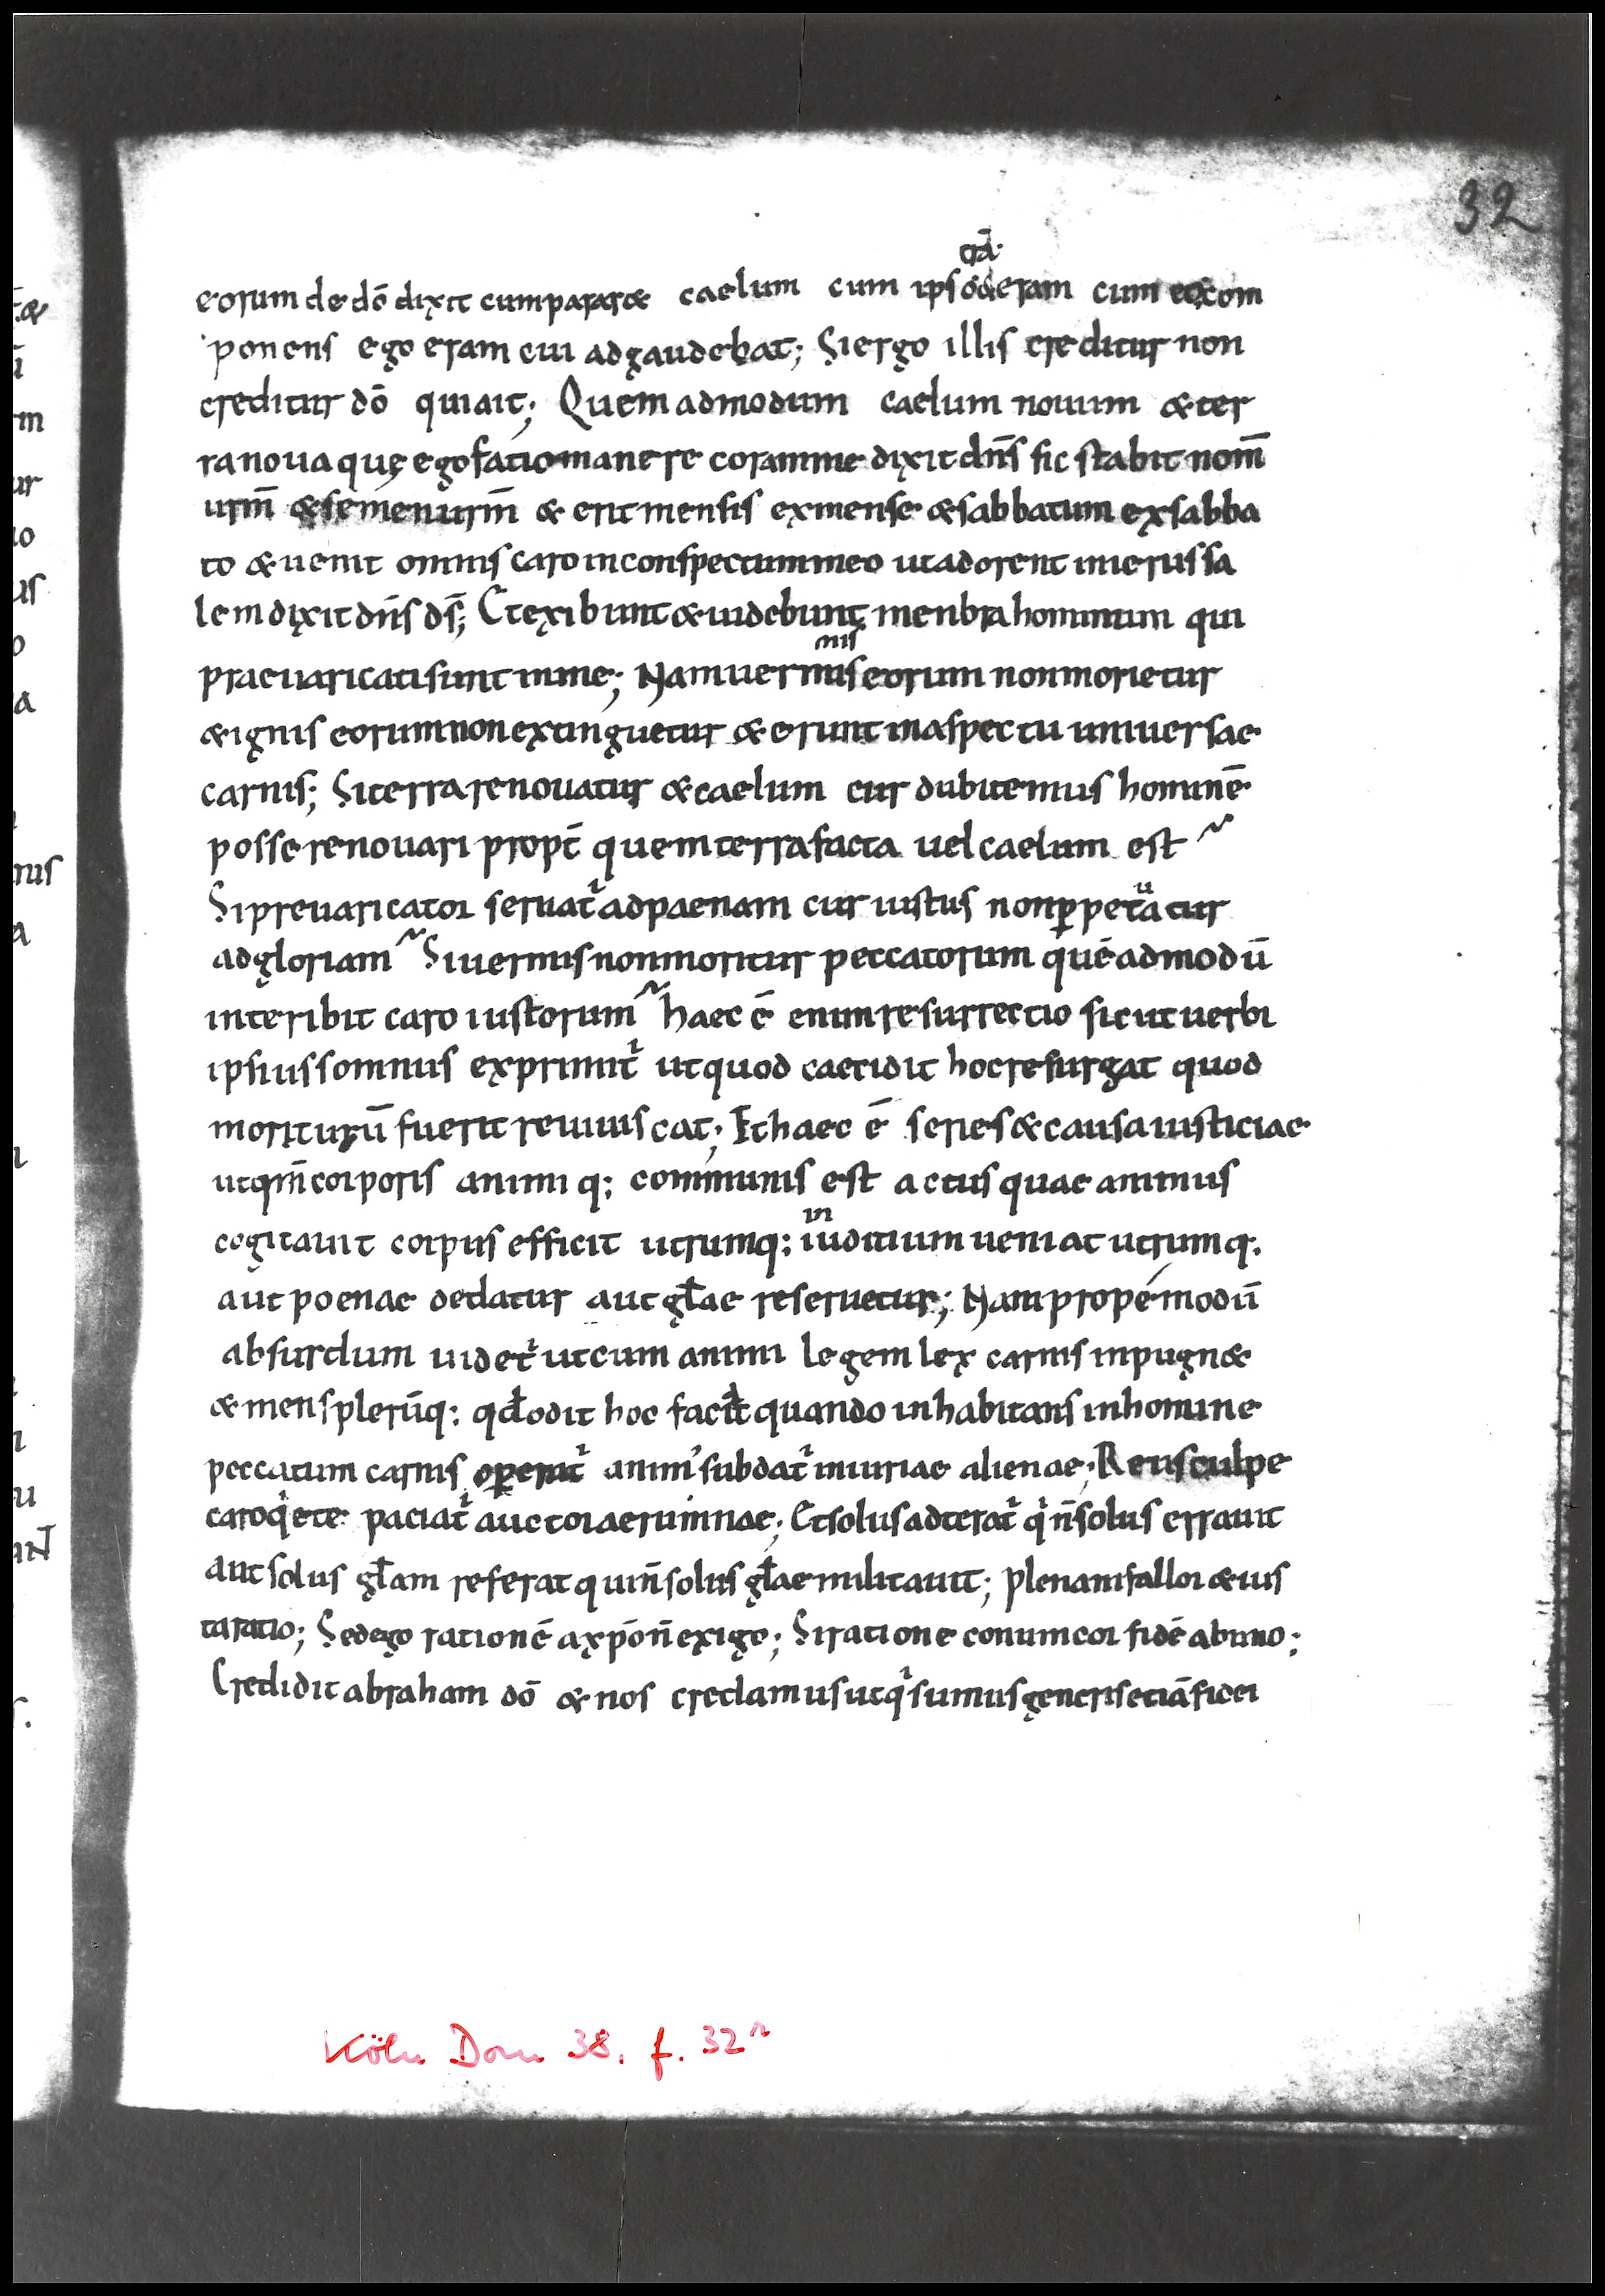 32
eorum de dō dixit cum pararæ caelum cum ipso eram cum eo com
ponens ego eram cui adgaudebat; Si ergo illis creditur non
creditur dō qui ait; Quem admodum caelum nouum & ter
ra noua quę ego fatio manere coram me dixit dn̄s sic stabit nom̄
urm̄ & semen urm̄ & erit mensis ex mense & sabbatum ex sabba
to & uenit omnis caro in conspectum meo ut adorent in ierussa
lem dixit dn̄s ds̄; Et exibunt & uidebunt menbra hominum qui
praeuaricati sunt in me; Nam uermis eorum non morietur
& ignis eorum non extinguetur & erunt in aspectu uniuersae
carnis; Si terra renouatur & caelum cur dubitemus hominē
posse renouari propt̄ quem terra facta uel caelum est~
Si preuaricator seruat᷑ ad paenam cur iustus non ꝑpetuatur
ad gloriam~ Si uermis non moritur peccatorum quē admodū
interibit caro iustorum~ haec ē enim resurrectio sicut uerbi
ipsius somnus exprimit᷑ ut quod caecidit hoc resurgat quod
moriturū fuerit reuiuiscat; Et haec ē series & causa iusticiae
ut qm̄ corporis animi q; communis est actus quae animus
cogitauit corpus efficit utrumq; in iuditium ueniat utrumq;
aut poenae dedatur aut głae reseruetur; Nam propemodū
absurdum uidet᷑ ut cum animi legem lex carnis inpugnæ
& mens plerūq; qđ odit hoc facit quando inhabitans in homine
peccatum carnis operat᷑ anim' subdat᷑ iniuriae alienae; Reus culpe
caro q'ete paciat᷑ auctor aerumnae; Et solus adterat᷑ q' n̄ solus errauit
aut solus głam referat qui n̄ solus głae militauit; plena ni fallor & ius
ta ratio; Sed ego rationē a xp̄o n̄ exigo; Si ratione conuincor fidē abnuo;
Credidit abraham dō & nos credamus ut q' sumus generis etiā fidei
Köln Dom 38. f. 32r